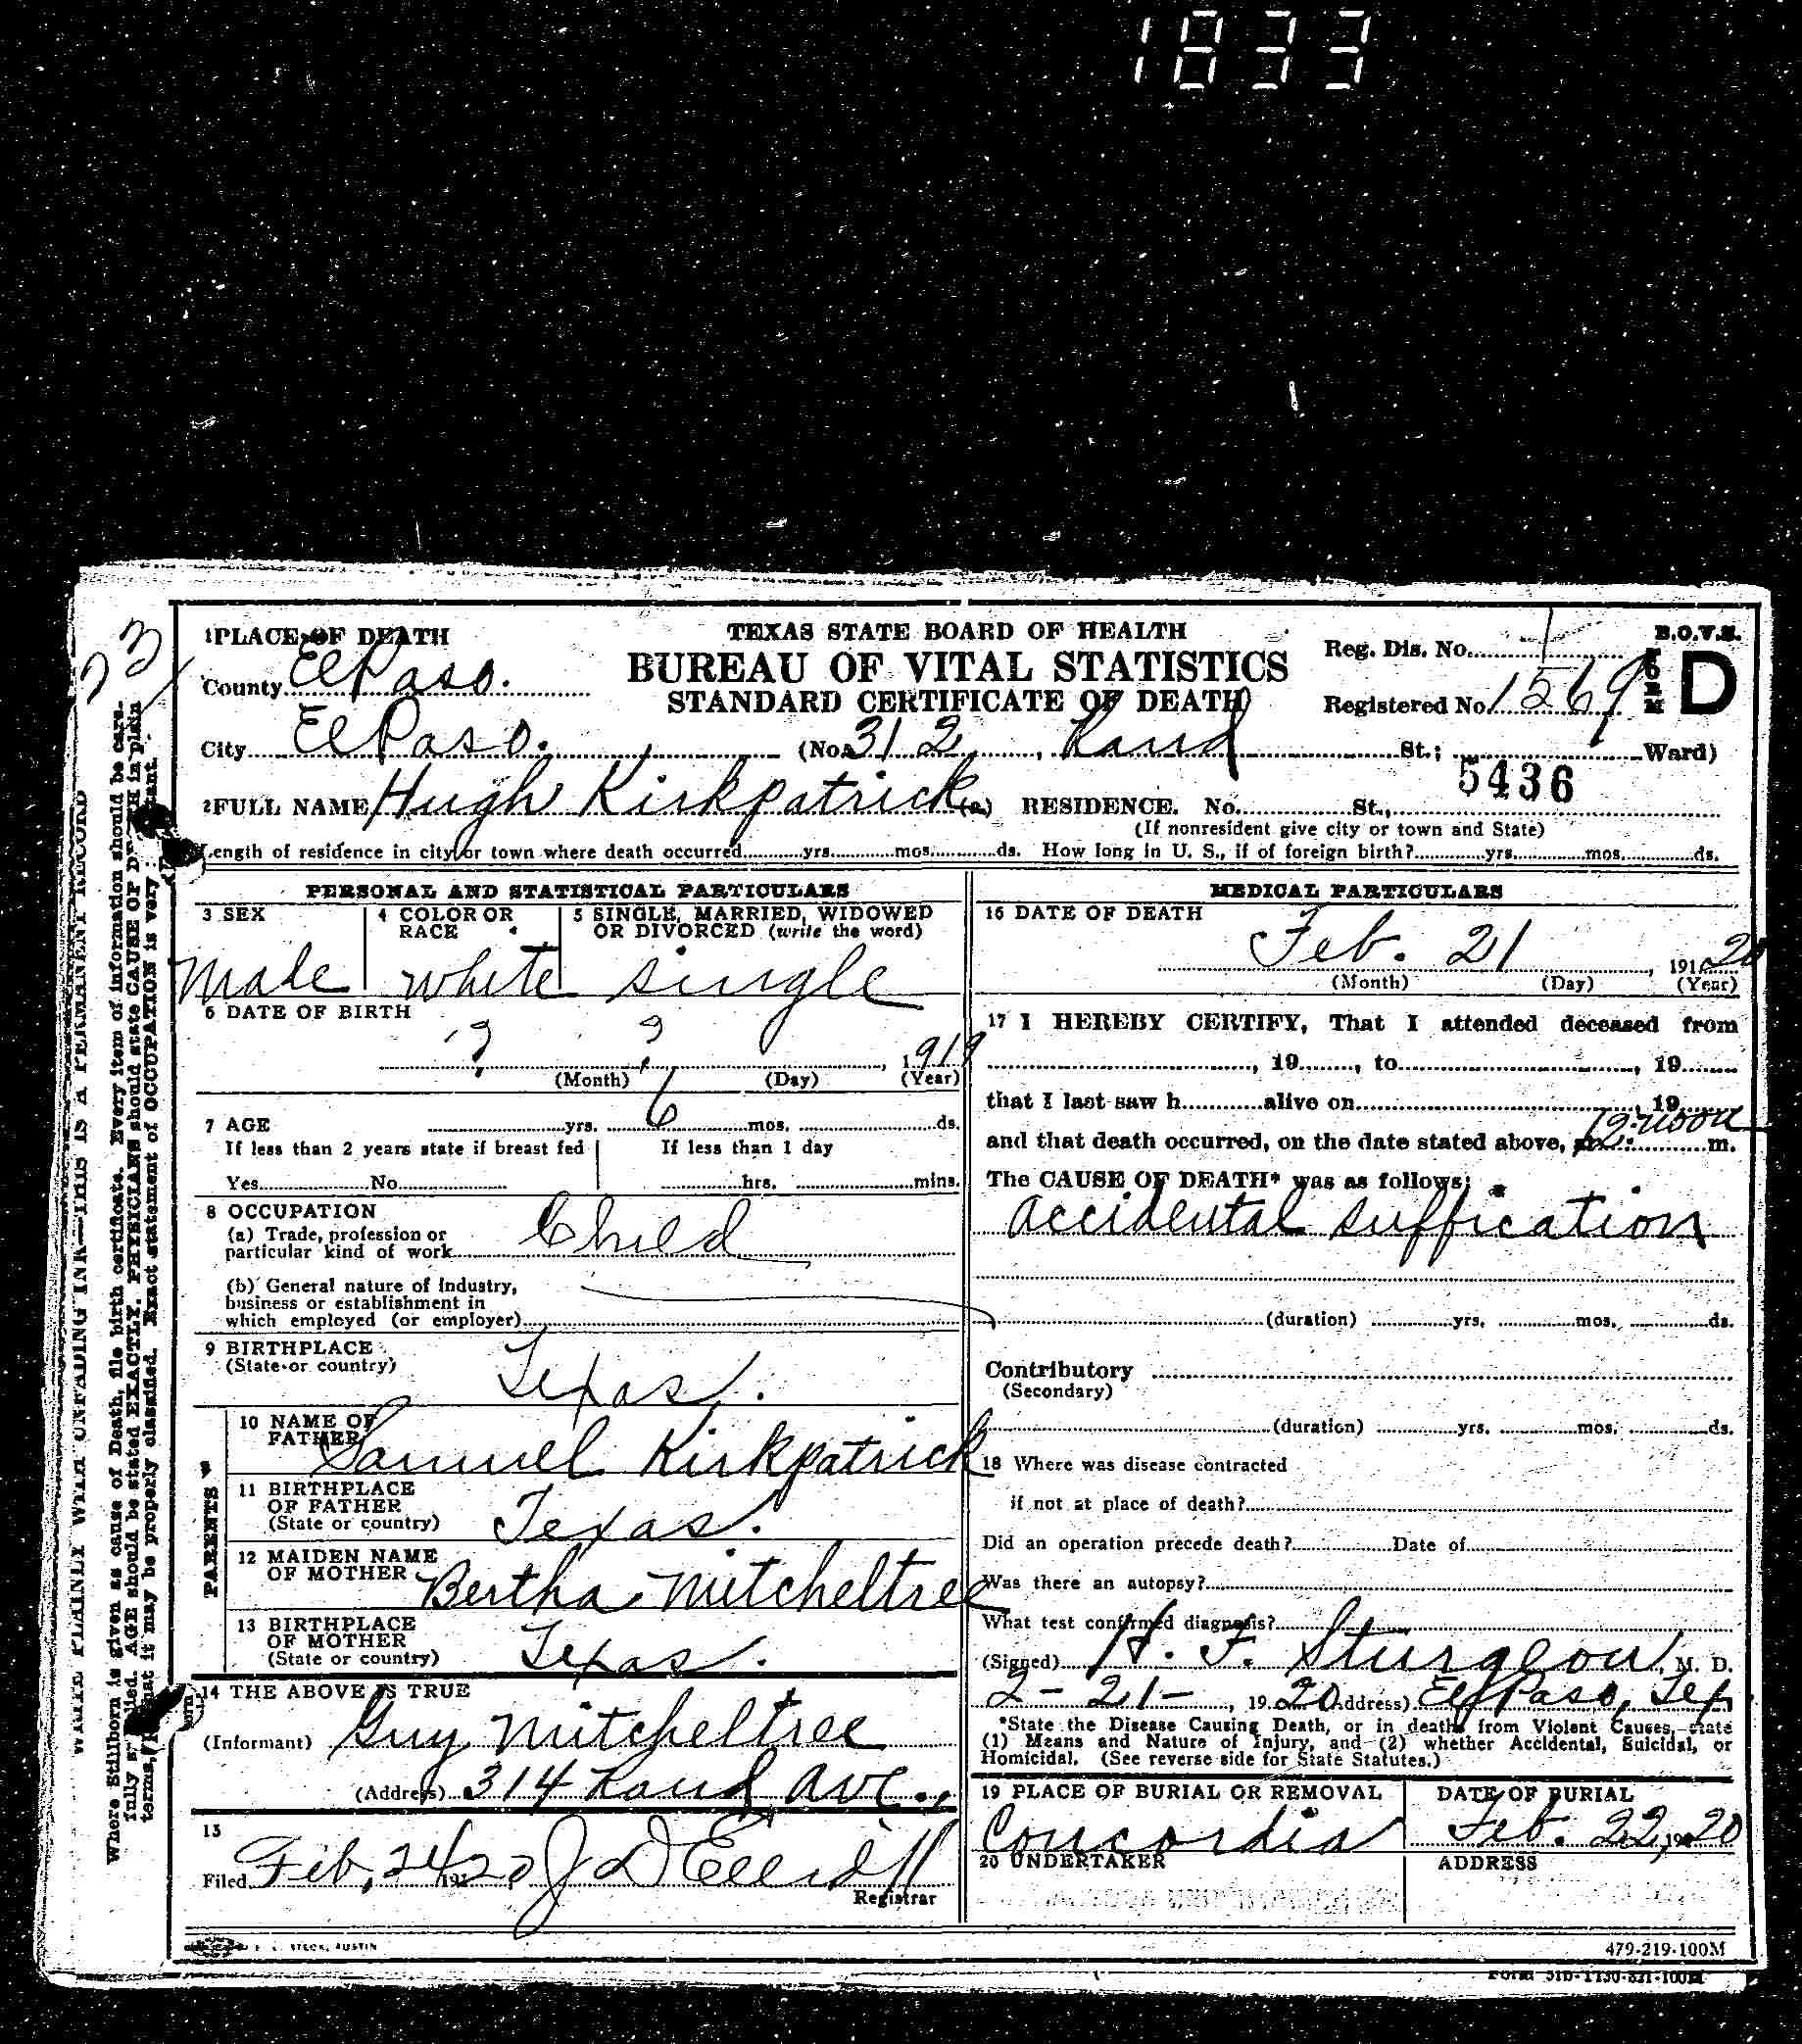 1833
1 PLACE OF DEATH
TEXAS STATE BOARD OF HEALTH
BUREAU OF VITAL STATISTICS
STANDARD CERTIFICATE OF DEATH
B.O.V.S.
D
Reg. Dis. No. 1
County El Paso.
Registered No. 1569
City El Paso. (No. 312, Rand St.; Ward)
5436
2 FULL NAME Hugh Kirkpatrick (a) RESIDENCE. No. St.,
(If nonresident give city or town and State)
Length of residence in city or town where death occurred yrs. mos. ds. How long in U. S., if of foreign birth? yrs. mos. ds.
PERSONAL AND STATISTICAL PARTICULARS
3 SEX
male
4 COLOR OR RACE
white
5 SINGLE, MARRIED, WIDOWED
OR DIVORCED (write the word)
single
6 DATE OF BIRTH
? ? , 1919
(Month) (Day) (Year)
7 AGE yrs. 6 mos. ds.
If less than 2 years state if breast fed
Yes No
If less than 1 day
hrs. mins.
8 OCCUPATION
(a) Trade, profession or
particular kind of work Child
(b) General nature of industry,
business or establishment in
which employed (or employer)
9 BIRTHPLACE
(State or country) Texas.
PARENTS
10 NAME OF
FATHER Samuel Kirkpatrick
11 BIRTHPLACE
OF FATHER
(State or country) Texas.
12 MAIDEN NAME
OF MOTHER Bertha Mitcheltree
13 BIRTHPLACE
OF MOTHER
(State or country) Texas.
14 THE ABOVE IS TRUE
(Informant) Guy Mitcheltree
(Address) 314 Rand Ave.,
15
Filed Feb, 24 1920 J D Elliott
Registrar
MEDICAL PARTICULARS
16 DATE OF DEATH
Feb. 21, 191 20
(Month) (Day) (Year)
17 I HEREBY CERTIFY, That I attended deceased from
, 19 , to , 19
that I last saw h alive on , 19
and that death occurred, on the date stated above, at 12-noon m.
The CAUSE OF DEATH* was as follows:
accidental suffication
(duration) yrs. mos. ds.
Contributory
(Secondary)
(duration) yrs. mos. ds.
18 Where was disease contracted
if not at place of death?
Did an operation precede death? Date of
Was there an autopsy?
What test confirmed diagnosis?
(Signed) H. F. Sturgeon, M. D.
2-21-, 1920 (Address) El Paso, Tex
*State the Disease Causing Death, or in deaths from Violent Causes, state
(1) Means and Nature of Injury, and (2) whether Accidental, Suicidal, or
Homicidal. (See reverse side for State Statutes.)
19 PLACE OF BURIAL OR REMOVAL
Concordia
DATE OF BURIAL
Feb. 22, 1920
20 UNDERTAKER
ADDRESS
STECK, AUSTIN
479-219-100M
WRITE PLAINLY WITH UNFADING INK—THIS IS A PERMANENT RECORD
Where Stillborn is given as cause of Death, file birth certificate. Every item of information should be care-
fully supplied. AGE should be stated EXACTLY. PHYSICIANS should state CAUSE OF DEATH in plain
terms, that it may be properly classified. Exact statement of OCCUPATION is very important.